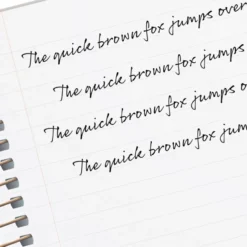 The quick brown fox jumps over
The quick brown fox jumps
The quick brown fox jumps o
The quick brown fox jum